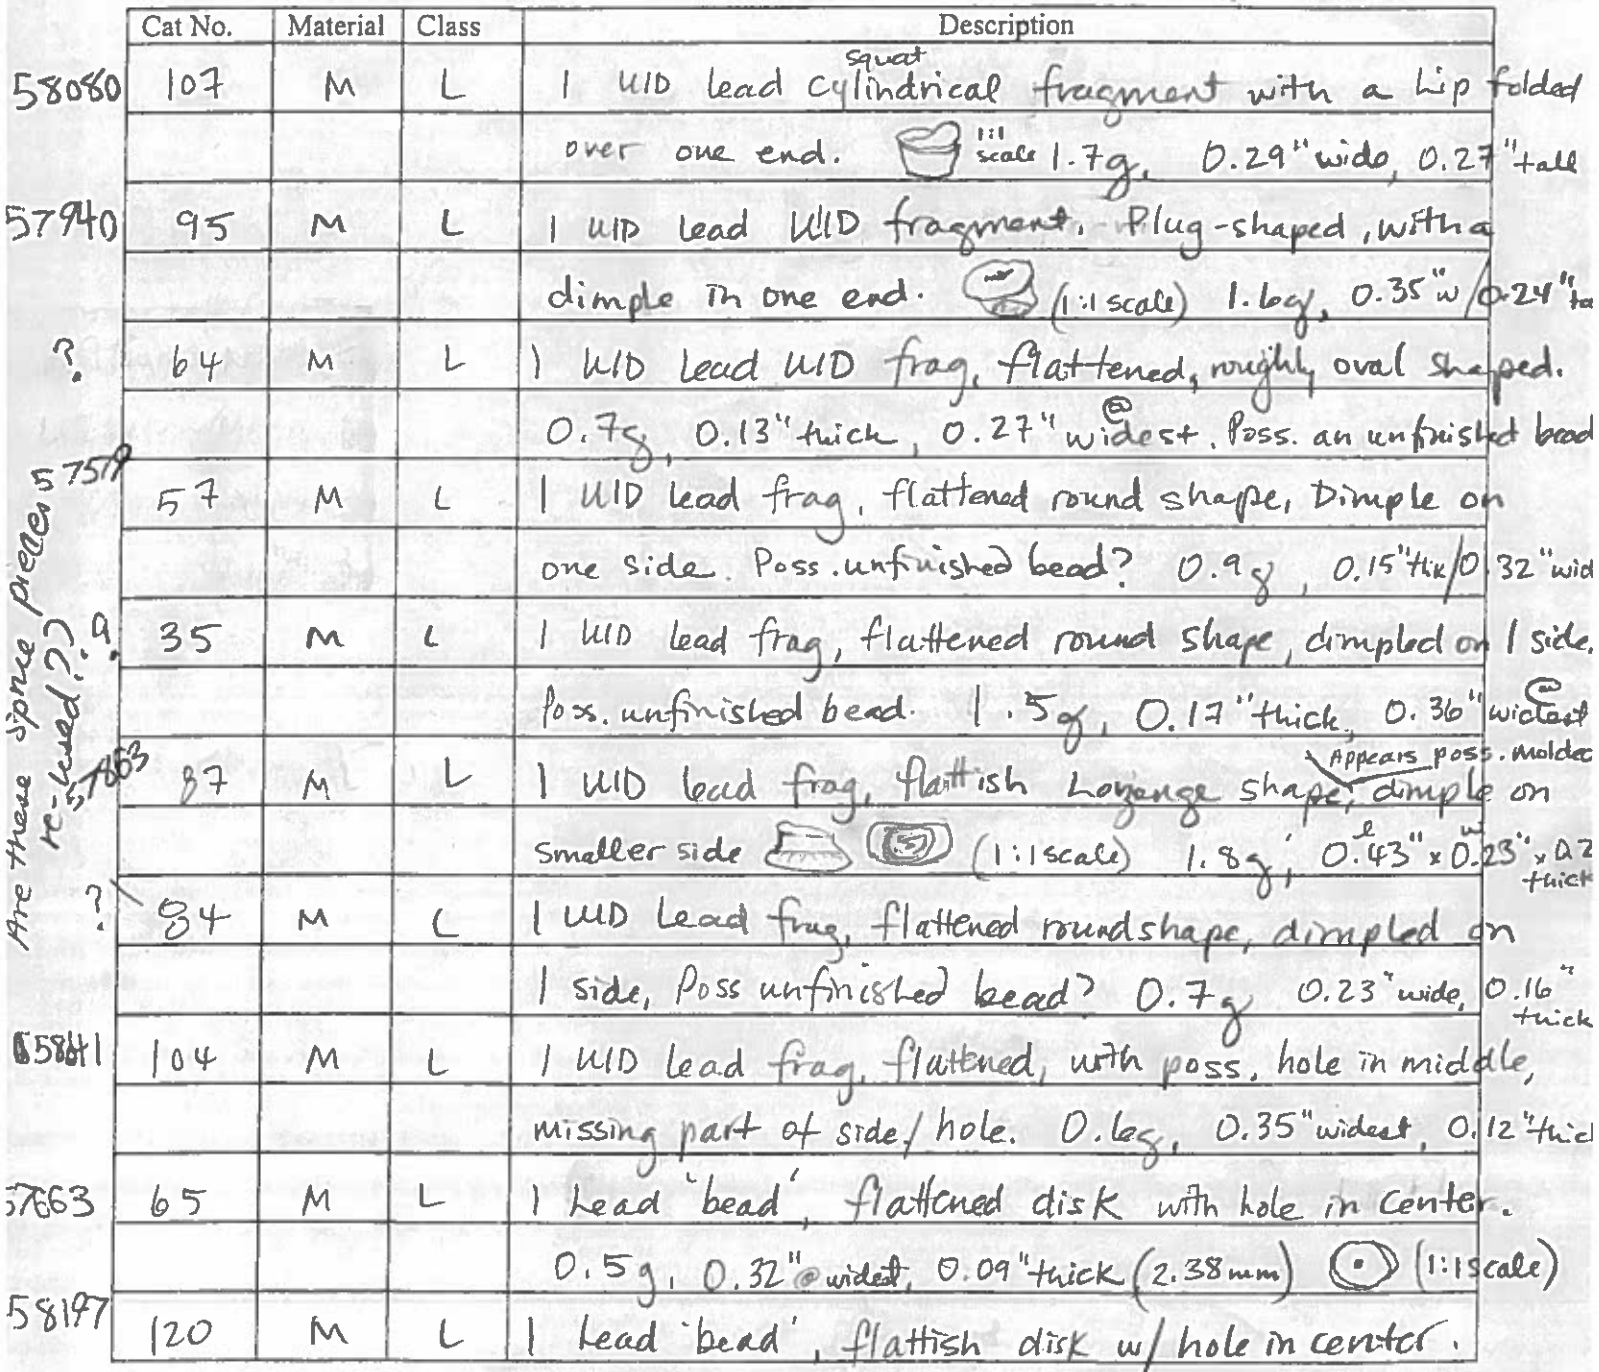 Cat No. Material Class Description
squat
58080 107 M L 1 UID lead cylindrical fragment with a Lip folded
over one end. 1:1 scale 1.7g, 0.29" wide, 0.27" tall
57940 95 M L 1 UID Lead UID fragment. Plug-shaped, with a
dimple in one end. (1:1 scale) 1.6g, 0.35" w/0.24" ta
? 64 M L 1 UID Lead UID frag, flattened, roughly oval shaped.
0.7g, 0.13" thick, 0.27" @ widest. Poss. an unfinished bead
57 M L 1 UID lead frag, flattened round shape, Dimple on
one side. Poss. unfinished bead? 0.9g, 0.15" thk/0.32" wid
Are these sprue pieces
re-used???
? 35 M L 1 UID lead frag, flattened round shape, dimpled on 1 side.
Poss. unfinished bead. 1 5g, 0.17" thick, 0.36" @ widest
Appears poss. molded
57863 87 M L 1 UID lead frag, flattish Lozenge shape, dimple on
smaller side (1:1 scale) 1.8g, 0.43" l x 0.23" w x 0.2 thick
? 84 M L 1 UID Lead frag, flattened round shape, dimpled on
1 side, Poss unfinished bead? 0.7g 0.23" wide, 0.16" thick
104 M L 1 UID lead frag, flattened, with poss. hole in middle,
missing part of side/hole. 0.6g, 0.35" widest, 0.12" thick
57663 65 M L 1 Lead 'bead', flattened disk with hole in center.
0.5g, 0.32" @ widest, 0.09" thick (2.38mm) (1:1 scale)
58197 120 M L 1 Lead 'bead', flattish disk w/ hole in center.